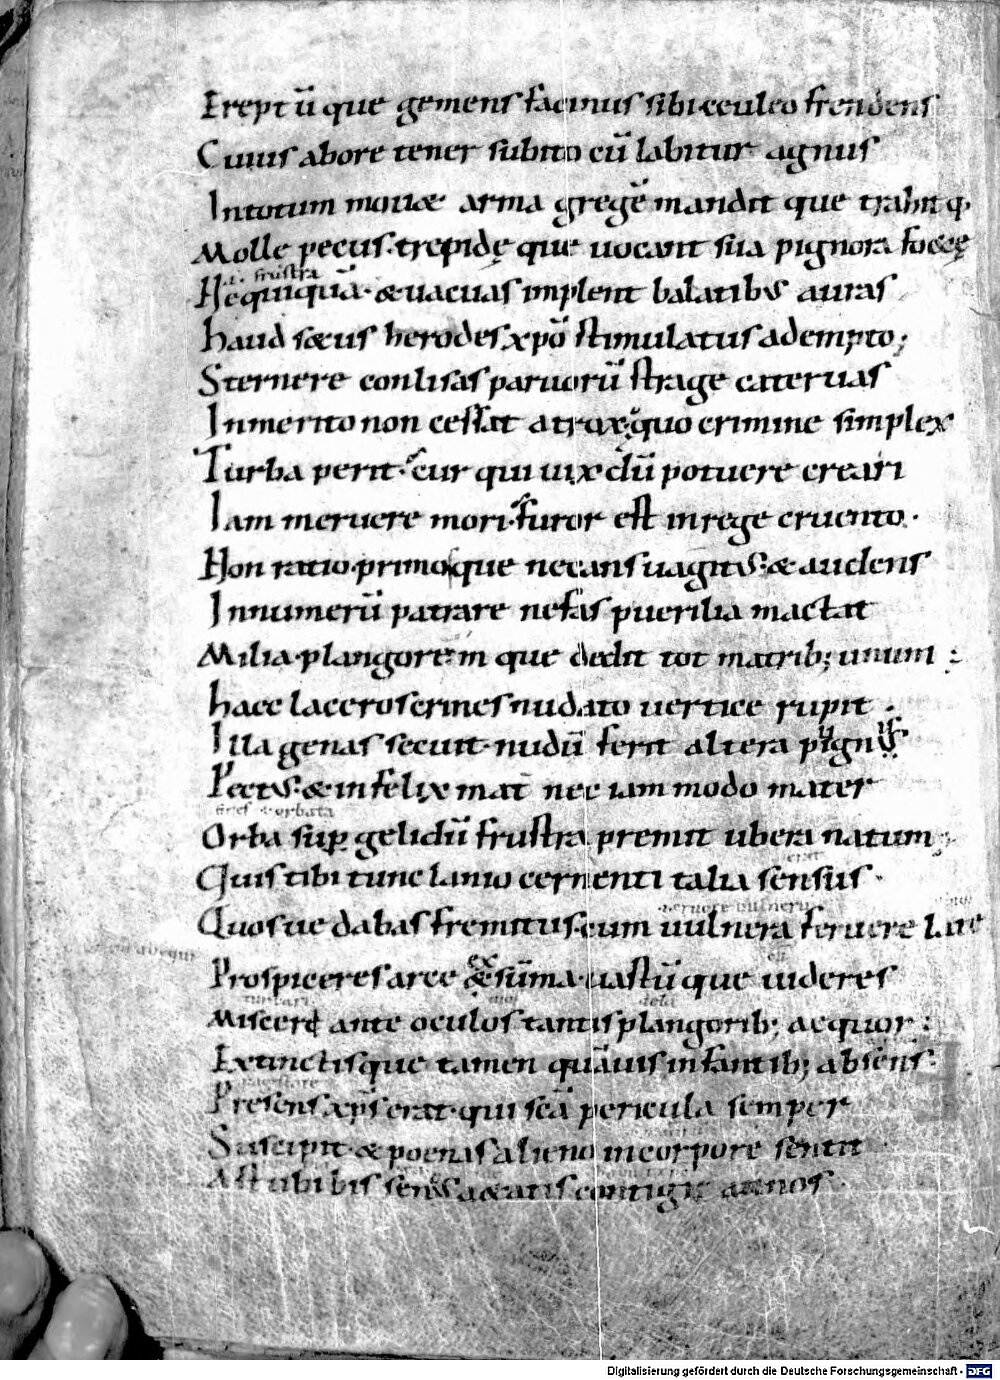 Ereptū que gemens facinus sibi ceu leo frendens
Cuius abore tener subito cū labitur agnus
Intotum mouæ arma gregē mandit que trahit q;
Molle pecus trepidę que uocant sua pignora foetę
i. frustra
Nequiquā & uacuas implent balatibus auras
haud sæcus herodes xpō stimulatus adempto;
Sternere conlisas paruorū strage cateruas
Inmerito non cessat atrox quo crimine simplex
Turba perit cur qui uix dū potuere creari
Iam meruere mori furor est inrege cruento.
Non ratio primosque necans uagitus & audens
Innumerū patrare nefas puerilia mactat
Milia plangorem que dedit tot matrib; unum;
haec laceros crines nudato uertice rupit.
Illa genas secuit nudū ferit altera pugnis
Pectus & infelix mat̄ nec iam modo mater
orbata
Orba sup gelidū frustra premit ubera natum;
erat
Quis tibi tunc lanio cernenti talia sensus.
uulneru
Quosue dabas fremitus cum uulnera feruere late
Prospiceres arce ex sūma uastū que uideres
turbari
Miscerꝭ ante oculos tantis plangorib; aequor:
Extinctisque tamen quāuis infantib; absens
Presens xp̄s erat qui scā pericula semper
Suscipit & poenas alieno incorpore sentit
Ast ubi bis senos aetatis contigit annos.
Digitalisierung gefördert durch die Deutsche Forschungsgemeinschaft - DFG